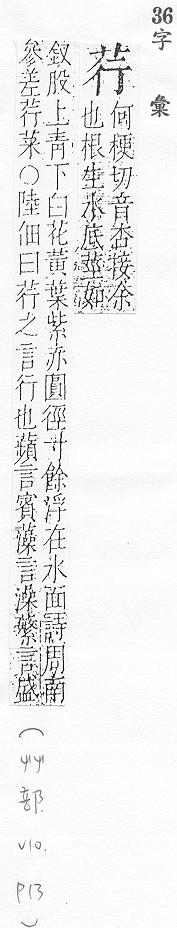 36
字彙
荇 何梗切音杏接余
也根生水底莖如
釵股上靑下白花黃葉紫赤圓徑寸餘浮在水面詩周南
參差荇菜○陸佃曰荇之言行也蘋言賓藻言澡蘩言盛
(艸部 V10. P13)